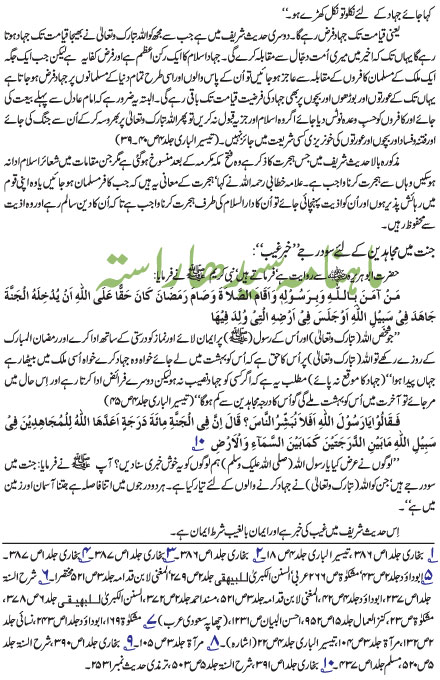 کہا جائے جہاد کے لئے نکلو تو نکل کھڑے ہو۔''
یعنی قیامت تک جہاد فرض رہے گا۔ دوسری حدیث شریف میں ہے جب سے مجھ کو اللہ تبارک وتعالیٰ نے بھیجا قیامت تک جہاد ہوتا
رہے گا یہاں تک کہ اخیر میری اُمت دجال سے مقابلہ کرے گی۔ جہاد اسلام کا ایک رکن اعظم ہے اور فرض کفایہ ہے لیکن جب ایک جگہ
ایک ملک کے مسلمان کافروں کے مقابلہ سے عاجز ہو جائیں تو اُن کے پاس والوں اور اسی طرح تمام دنیا کے مسلمانوں پر جہاد فرض ہو جاتا ہے
یہاں تک کے عورتوں اور بوڑھوں اور بچوں پر بھی جہاد کی فرضیت قیامت تک باقی رہے گی۔ البتہ یہ ضرور ہے کہ امام عادل سے پہلے بیعت کی
جائے اور کافروں کو حسب وعدہ نوٹس دیا جائے اگر وہ اسلام اور جزیہ قبول نہ کریں تو پھر اللہ تبارک وتعالیٰ پر بھروسہ کر کے اُن سے جنگ کی جائے
اور فتنہ وفساد اور بچوں اور عورتوں کی خونریزی کسی شریعت میں جائز نہیں۔ (تیسیر الباری جلد۴ص۴۰۔۳۹)
مذکورہ بالا حدیث شریف میں جس ہجرت کا ذکر ہے وہ فتح مکہ مکرمہ کے بعد منسوخ ہوگئی ہے لیکن جن مقامات میں شعائر اسلام ادا نہ
ہو سکیں وہاں سے ہجرت کرنا واجب ہے۔ علامہ خطابی رحمہ اللہ نے کہا ''ہجرت کے معانی یہ ہیں کہ جب کافر مسلمان ہو جائیں یا وہ اپنی قوم
میں رہائش پذیر ہوں اور اُن کو اذیت پہنچائی جائے تو اُن کا دار الاسلام کی طرف ہجرت کرنا واجب ہے تاکہ اُن کا دین سالم رہے اور وہ اذیت
سے محفوظ ہوں۔
جنت میں مجاہدین کے لئے سو درجے ''خبر غیب'':
ماہنامہ سیدھا راستہ
حضرت ابو ہریرہ ؓ سے روایت ہے فرماتے ہیں' نبی کریم ﷺ نے فرمایا:
مَنْ آمَنَ بِاللهِ وَبِرَسُوْلِهِ وَاَقَامَ الصَّلَاةَ وَصَامَ رَمَضَانَ كَانَ حَقًّا عَلَى اللهِ اَنْ يُدْخِلَهُ الْجَنَّةَ
جَاهَدَ فِي سَبِيْلِ اللهِ اَوْ جَلَسَ فِي اَرْضِهِ الَّتِيْ وُلِدَ فِيْهَا
''جو شخص اللہ (تبارک وتعالیٰ) اور اُس کے رسول (ﷺ) پر ایمان لائے اور نماز کو درستی کے ساتھ ادا کرے اور رمضان المبارک
کے روزے رکھے تو اللہ (تبارک وتعالیٰ) پر اُس کا حق ہے کہ اُس کو بہشت میں لے جائے خواہ وہ جہاد کرے خواہ اسی ملک میں بیٹھا رہے
جہاں پیدا ہوا'' (جہاد کا موقع نہ پائے) مطلب یہ ہے کہ اگر کسی کو جہاد نصیب نہ ہو لیکن دوسرے فرائض ادا کرتا رہے اور اس حال میں
مر جائے تو آخرت میں اُس کو بہشت ملے گی گو اُس کا درجہ مجاہدین سے کم ہوگا'' (تیسیر الباری جلد۴ص۴۵)
فَقَالُوْا يَا رَسُوْلَ اللهِ اَفَلَا نُبَشِّرُ النَّاسَ؟ قَالَ اِنَّ فِي الْجَنَّةِ مِائَةَ دَرَجَةٍ اَعَدَّهَا اللهُ لِلْمُجَاهِدِيْنَ فِيْ
سَبِيْلِ اللهِ مَابَيْنَ الدَّرَجَتَيْنِ كَمَا بَيْنَ السَّمَآءِ وَالْاَرْضِ ۱۰
''لوگوں نے عرض کیا یا رسول اللہ (صلی اللہ علیک وسلم) ہم لوگوں کو یہ خوش خبری سنا دیں؟ آپ ﷺ نے فرمایا: جنت میں
سو درجے ہیں جن کو اللہ (تبارک وتعالیٰ) نے جہاد کرنے والوں کے لئے تیار کیا ہے۔ ہر دو درجوں میں اتنا فاصلہ ہے جتنا آسمان اور زمین
میں ہے''۔
اِس حدیث شریف میں غیب کی خبر ہے اور ایمان بالغیب شرط ایمان ہے۔
۱ بخاری جلد۱ص۳۸۶، تیسیر الباری جلد۴ص۱۸۔ ۲ بخاری جلد۱ص۳۸۷۔ ۳ بخاری جلد۱ص۳۸۷۔ ۴ بخاری جلد۱ص۳۸۷۔
۵ ابوداؤد جلد۲ص۴۳، مشکوٰۃ ص۲۶۶ عربی، السنن الکبریٰ للبیہقی جلد۲ص۲۷۹، المغنی لابن قدامہ جلد۳ص۵۲ مختصراً۔ ۶ شرح السنۃ جلد
۱ص۲۳۷، ابوداؤد جلد۲ص۴۲، المغنی لابن قدامہ جلد۲ص۵۲۱، مسند احمد جلد۲ص۲۷، السنن الکبریٰ للبیہقی جلد۷ص۲۵، شرح السنۃ جلد
۵ص۲۳، کنز العمال جلد۵ص۹۵۲، احسن البیان ص۱۲۳۱، (چھاپہ سعودی عرب)۔ ۷ مشکوٰۃ ص۱۶۹، ابوداؤد جلد۱ص۲۴۳، نسائی جلد
۲ص۱۳۲، مرآۃ جلد۳ص۱۰۴، تیسیر الباری جلد۴ص۲۲ (اشارہ)۔ ۸ مرآۃ جلد۳ص۱۰۵۔ ۹ بخاری جلد۱ص۳۹۰، شرح السنۃ جلد
۵ص۵۲۰، مسلم جلد۱ص۴۳۷۔ ۱۰ بخاری جلد۱ص۳۹۱، شرح السنۃ جلد۵ص۵۰۳، ترمذی حدیث نمبر۲۵۳۱۔